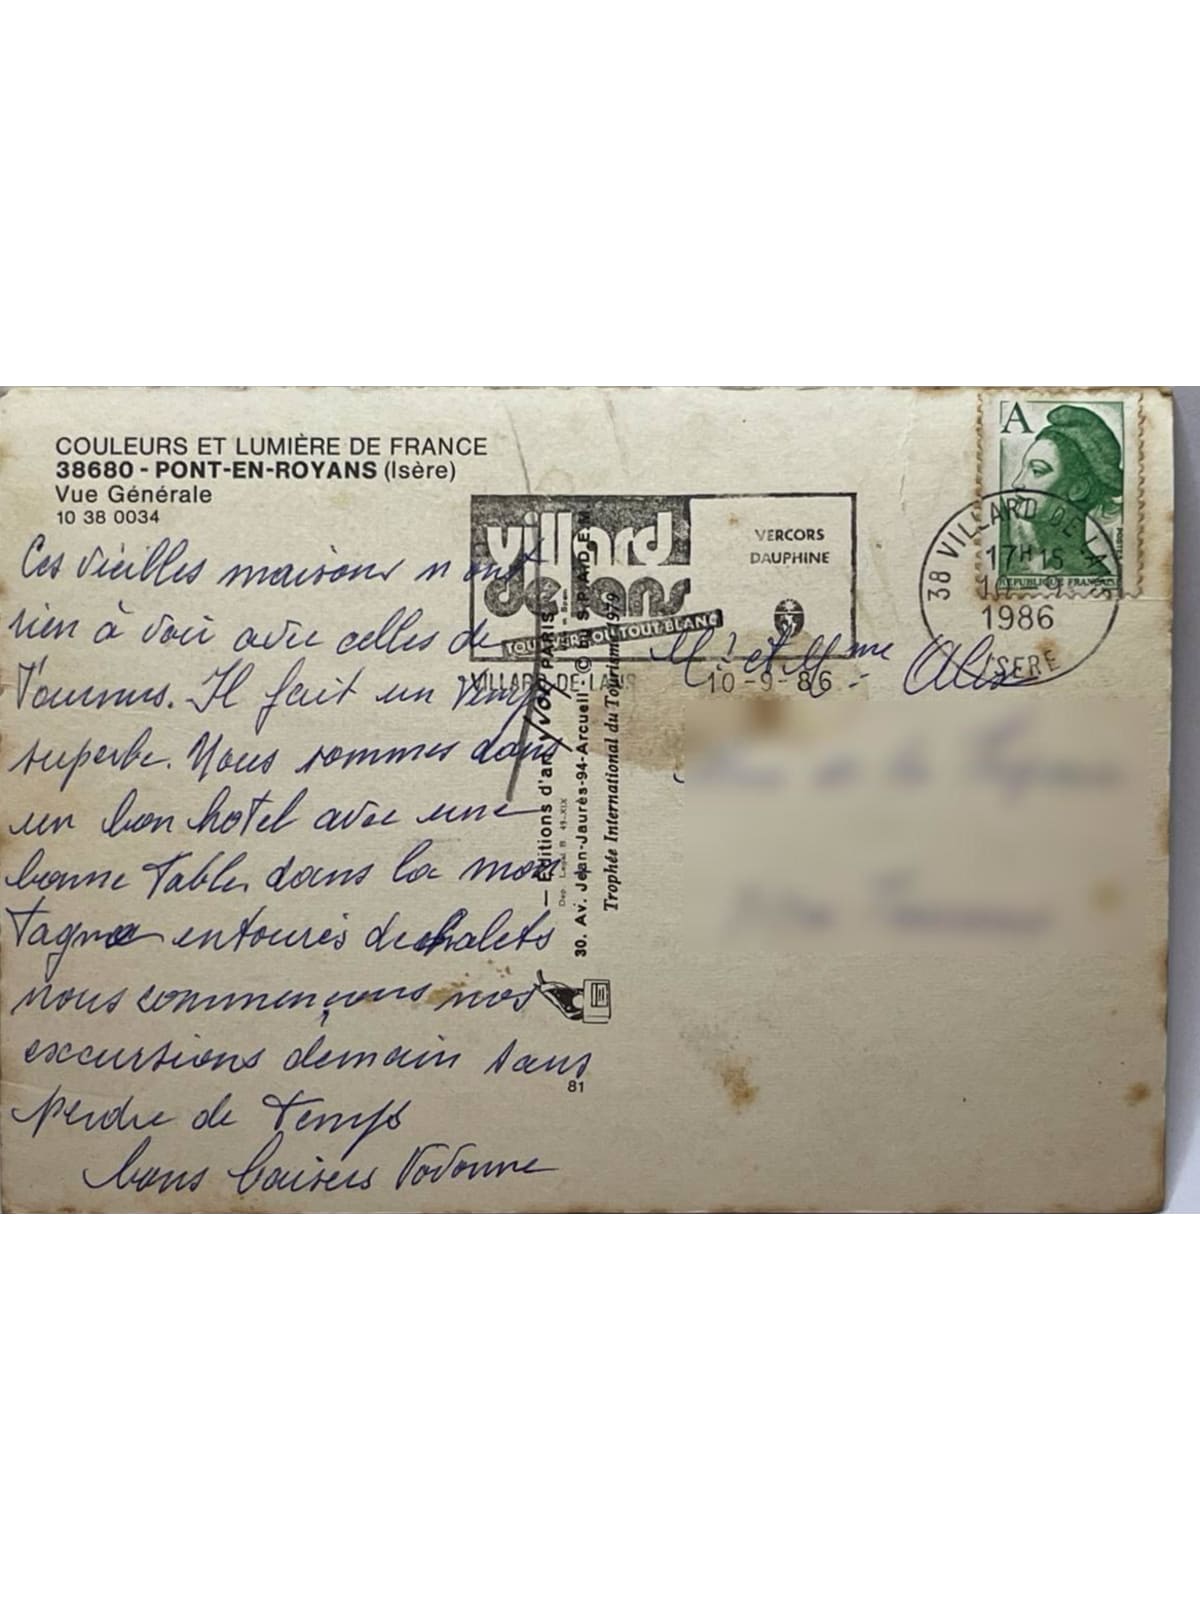 COULEURS ET LUMIÈRE DE FRANCE
38680 - PONT-EN-ROYANS (Isère)
Vue Générale
10 38 0034
Ces vieilles maisons n ont
rien à voir avec celles de
Tournus. Il fait un temps
superbe. Nous sommes dans
un bon hotel avec une
bonne Table, dans la mon
tagne entourés de chalets
nous commençons nos
excursions demain sans
perdre de Temps
bons baisers
villard
de lans
TOUT VERT OU TOUT BLANC
VERCORS
DAUPHINE
VILLARD-DE-LANS 10-9-86
A
POSTES
REPUBLIQUE FRANÇAISE
38 VILLARD-DE-LANS
17H15
1986
ISERE
Mr et Mme
— Editions d'art YVON PARIS
Dép. Légal B. 49-XIX
30. Av. Jean-Jaurès-94-Arcueil - © by S.P.A.D.E.M.
Trophée International du Tourisme 1979
81